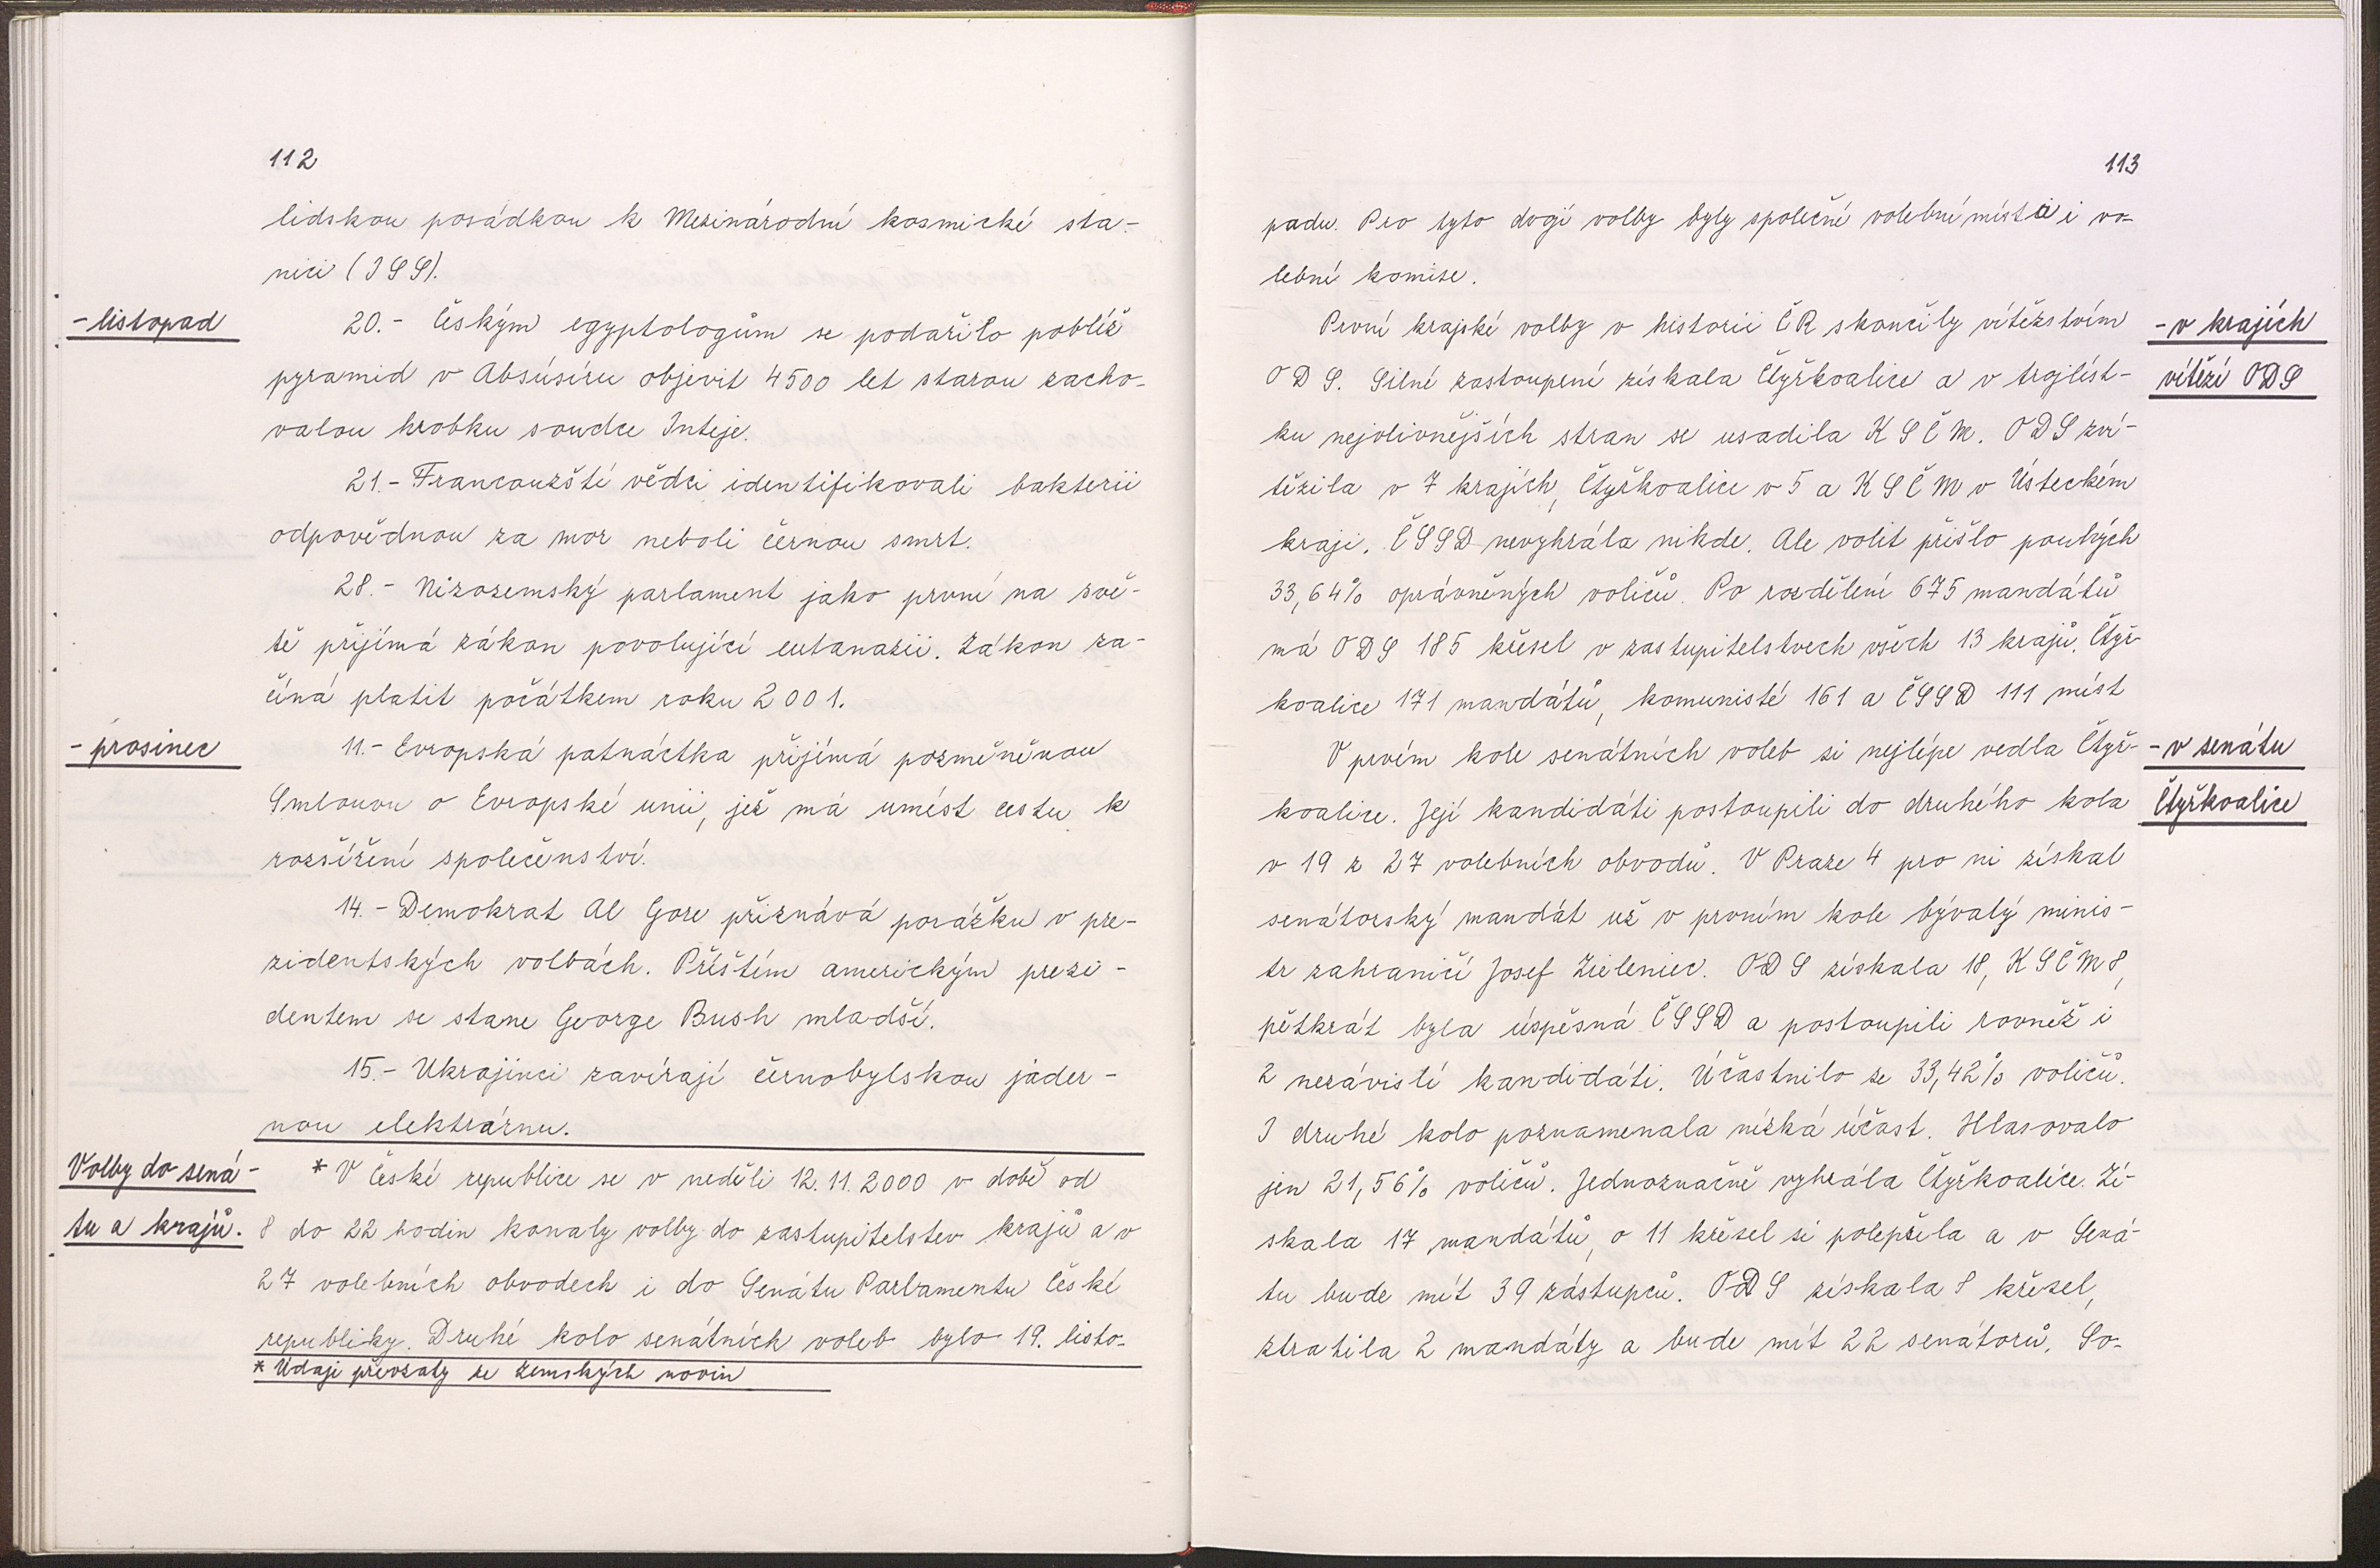 112
lidskou posádkou k Mezinárodní kosmické sta-
nici (ISS).
- listopad
20. - Českým egyptologům se podařilo poblíž
pyramid v Absúsíru objevit 4500 let starou zacho-
valou hrobku soudce Inteje.
21. - Francouzští vědci identifikovali bakterii
odpovědnou za mor neboli černou smrt.
28. - Nizozemský parlament jako první na svě-
tě přijímá zákon povolující eutanazii. Zákon za-
číná platit počátkem roku 2001.
- prosinec
11. - Evropská patnáctka přijímá pozměněnou
Smlouvu o Evropské unii, jež má umést cestu k
rozšíření společenství.
14. - Demokrat Al Gore přiznává porážku v pre-
zidentských volbách. Příštím americkým prezi-
dentem se stane George Bush mladší.
15. - Ukrajinci zavírají černobylskou jader-
nou elektrárnu.
Volby do sená-
tu a krajů.
* V České republice se v neděli 12. 11. 2000 v době od
8 do 22 hodin konaly volby do zastupitelstev krajů a v
27 volebních obvodech i do Senátu Parlamentu České
republiky. Druhé kolo senátních voleb bylo 19. listo-
* Údaje převzaty ze Zemských novin
113
padu. Pro tyto dvojí volby byly společné volební místa i vo-
lební komise.
První krajské volby v historii ČR skončily vítězstvím
- v krajích
ODS. Silné zastoupení získala Čtyřkoalice a v trojlíst-
vítězí ODS
ku nejvlivnějších stran se usadila KSČM. ODS zví-
tězila v 7 krajích, Čtyřkoalice v 5 a KSČM v Ústeckém
kraji. ČSSD nevyhrála nikde. Ale volit přišlo pouhých
33,64% oprávněných voličů. Po rozdělení 675 mandátů
má ODS 185 křesel v zastupitelstvech všech 13 krajů. Čtyř-
koalice 171 mandátů, komunisté 161 a ČSSD 111 míst
V prvím kole senátních voleb si nejlépe vedla Čtyř-
- v senátu
koalice. Její kandidáti postoupili do druhého kola
Čtyřkoalice
v 19 z 27 volebních obvodů. V Praze 4 pro ni získal
senátorský mandát už v prvním kole bývalý minis-
tr zahraničí Josef Zieleniec. ODS získala 18, KSČM 8,
pětkrát byla úspěsná ČSSD a postoupili rovněž i
2 nezávislí kandidáti. Účastnilo se 33,42% voličů.
I druhé kolo poznamenala nízká účast. Hlasovalo
jen 21,56% voličů. Jednoznačně vyhrála Čtyřkoalice. Zí-
skala 17 mandátů, o 11 křesel si polepšila a v Sená-
tu bude mít 39 zástupců. ODS získala 8 křesel,
ztratila 2 mandáty a bude mít 22 senátorů. So-